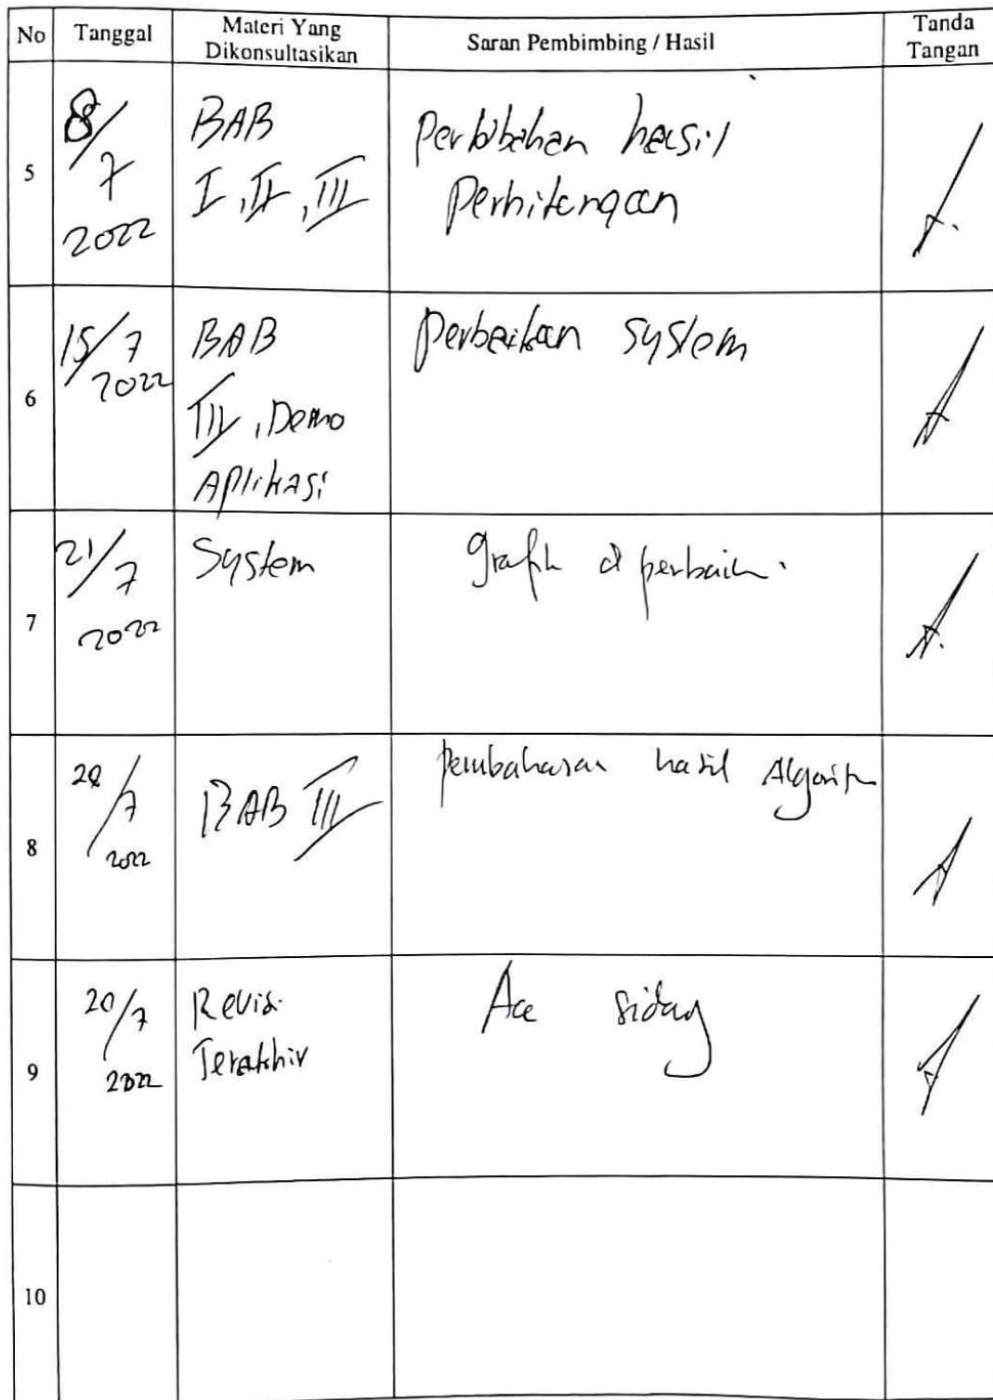 No Tanggal Materi Yang Dikonsultasikan Saran Pembimbing / Hasil Tanda Tangan
5
8/7
2022
BAB
I, II, III
hasil
Perhitungan
6
15/7
2022
BAB
III, Demo
Aplikasi
Perbaikan System
7
21/7
2022
System
grafik di perbaiki.
8
/7
2022
BAB III
pembahasan hasil Algoritm
9
20/7
2022
Revisi
Terakhir
Acc sidang
10